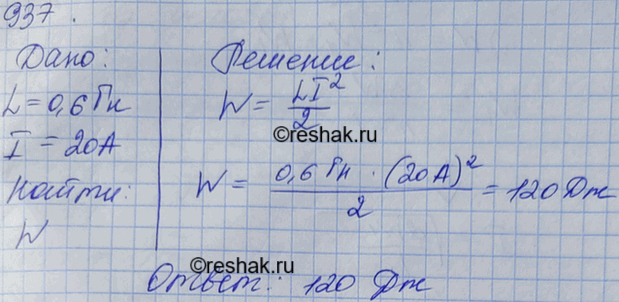 937.
Дано:
L = 0,6 Гн
I = 20А
Найти:
W
Решение:
W = LI²/2
©reshak.ru
W = 0,6 Гн · (20А)²/2 = 120 Дж
©reshak.ru
Ответ: 120 Дж